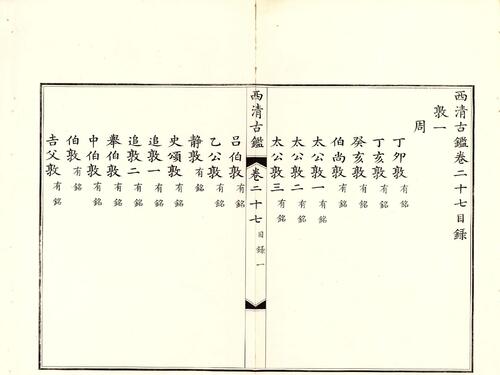 西清古鑑卷二十七目錄
敦一
周
丁卯敦有銘
丁亥敦有銘
癸亥敦有銘
伯尚敦有銘
太公敦一有銘
太公敦二有銘
太公敦三有銘
西清古鑑 卷二十七 目錄 一
呂伯敦有銘
乙公敦有銘
靜敦有銘
史頌敦有銘
追敦一有銘
追敦二有銘
舉伯敦有銘
中伯敦有銘
伯敦有銘
吉父敦有銘